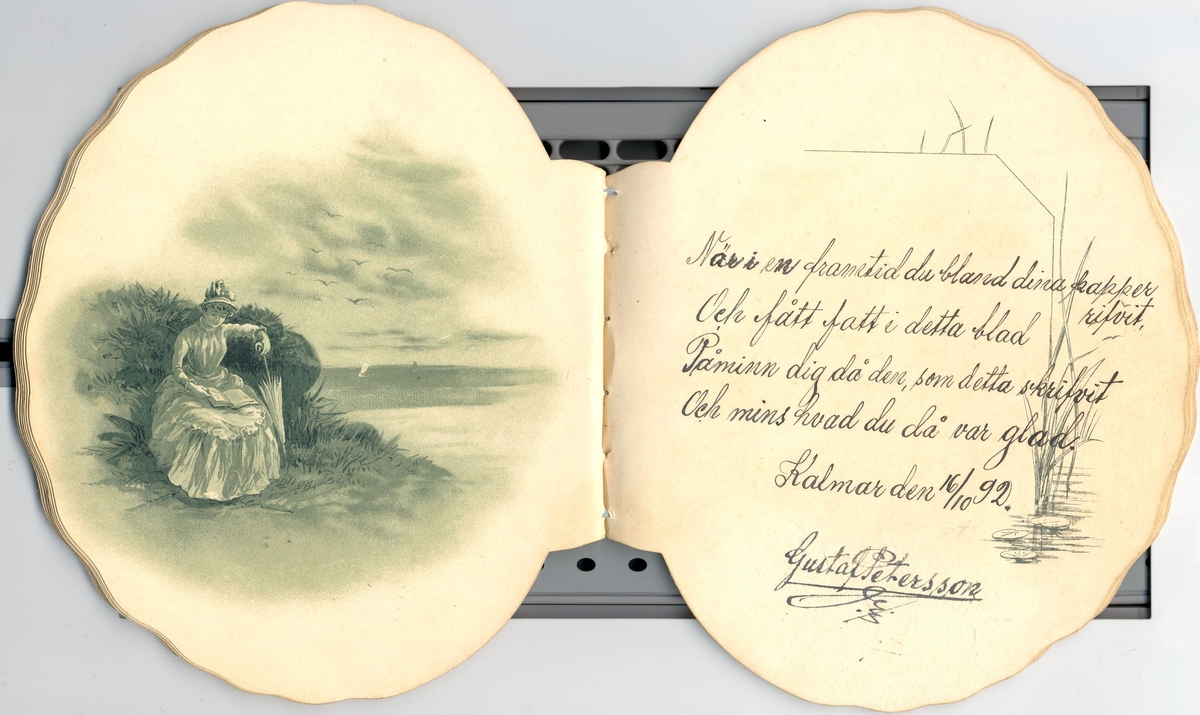 När i en framtid du bland dina papper
rifvit,
Och fått fatt i detta blad
Påminn dig då den, som detta skrifvit
Och mins hvad du då var glad.
Kalmar den 16/10 92.
Gustaf Petersson